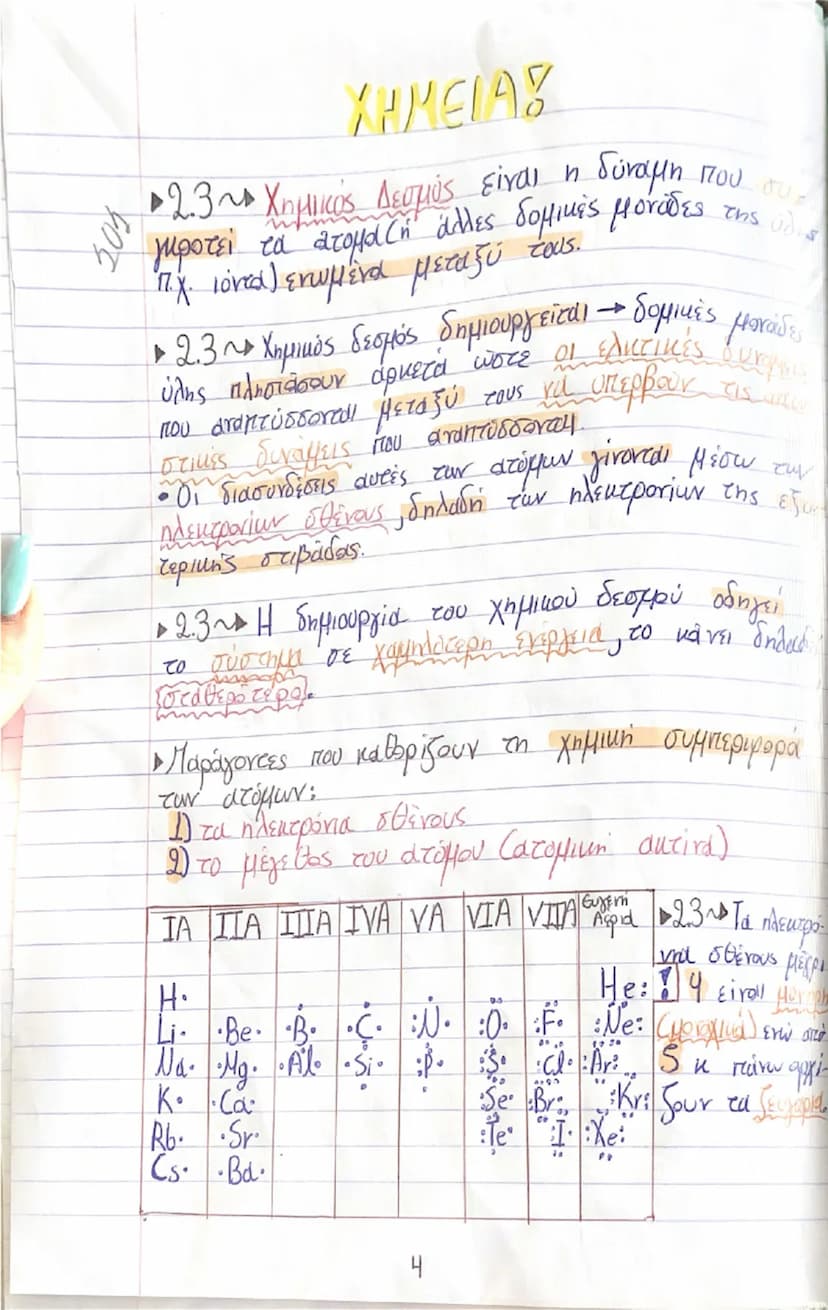 ΧΗΜΕΙΑ!
▸2.3~▸ Χημικός Δεσμός είναι η δύναμη που συγ-
κροτεί τα άτομα(ή άλλες δομικές μονάδες της ύλης
π.χ. ιόντα) ενωμένα μεταξύ τους.
▸2.3~▸ Χημικός δεσμός δημιουργείται → δομικές μονάδες
ύλης πλησιάσουν αρκετά ώστε οι ελκτικές δυνάμεις
που αναπτύσσονται μεταξύ τους να υπερβούν τις απω
στικές δυνάμεις που αναπτύσσονται.
•Οι διασυνδέσεις αυτές των ατόμων γίνονται μέσω των
ηλεκτρονίων σθένους, δηλαδή των ηλεκτρονίων της εξω
τερικής στιβάδας.
▸2.3~▸ Η δημιουργία του χημικού δεσμού οδηγεί
το σύστημα σε χαμηλότερη ενέργεια, το κάνει δηλαδή
σταθερότερο.
▸Παράγοντες που καθορίζουν τη χημική συμπεριφορά
των ατόμων:
1) τα ηλεκτρόνια σθένους
2) το μέγεθος του ατόμου (ατομική ακτίνα)
IA IIA IIIA IVA VA VIA VIIA Ευγενή Αέρια
H· He:
Li· ·Be· ·B· ·C· :N· :O· :F· :Ne:
Na· ·Mg· ·Al· ·Si· :P· :S· :Cl· :Ar:
K· ·Ca· :Se· :Br· :Kr:
Rb· ·Sr· :Te· :I· :Xe:
Cs· ·Ba·
▸2.3~▸Τα ηλεκτρό-
νια σθένους μέχρι
! 4 είναι μονήρη
(μοναχικά) ενώ από
5 κ πάνω αρχί-
ζουν τα ζευγάρια.
4